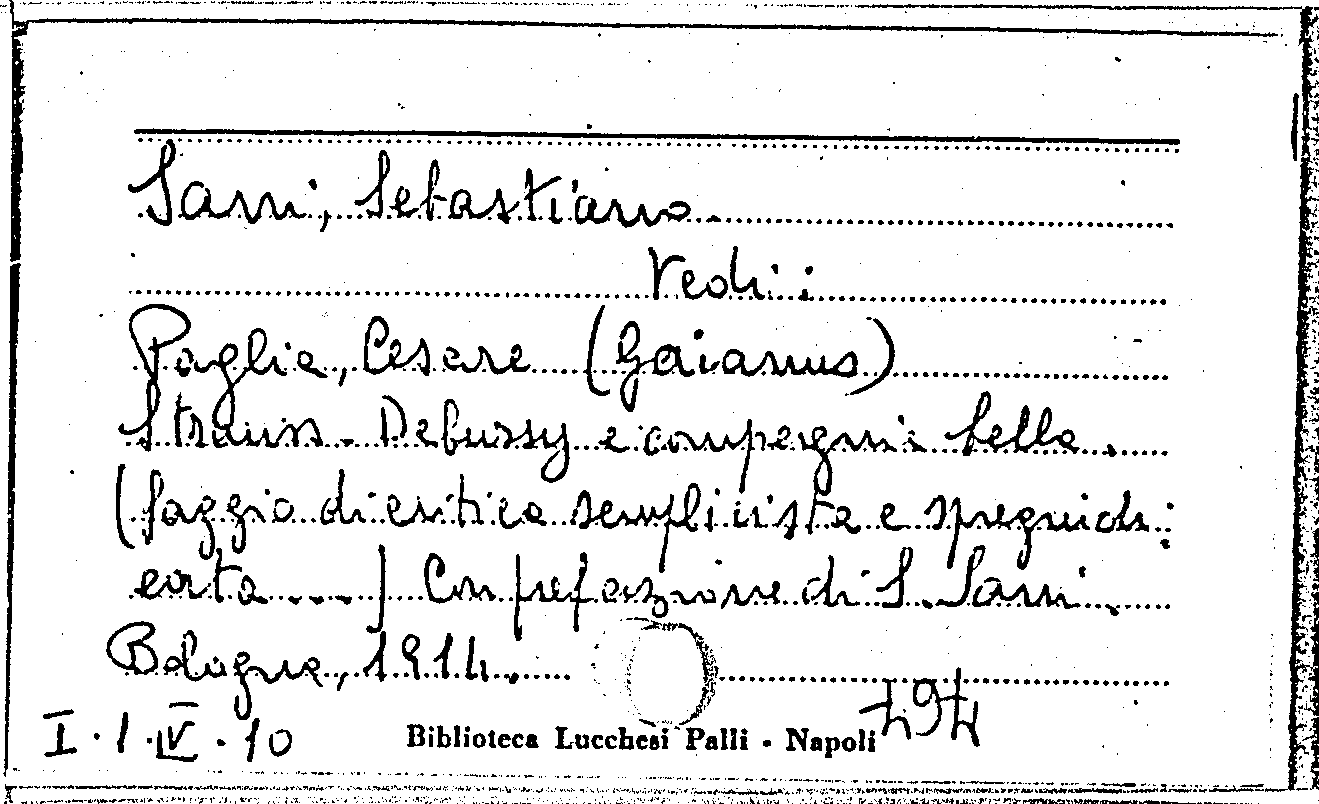 Sani, Sebastiano.
Vedi:
Paglia, Cesare (Gaianus)
Strauss - Debussy e compagnia bella.
(Saggio di critica semplicista e spregiudi:
cata ...) Con prefazione di S. Sani.
Bologna, 1914.
I.1.IV.10
Biblioteca Lucchesi Palli - Napoli